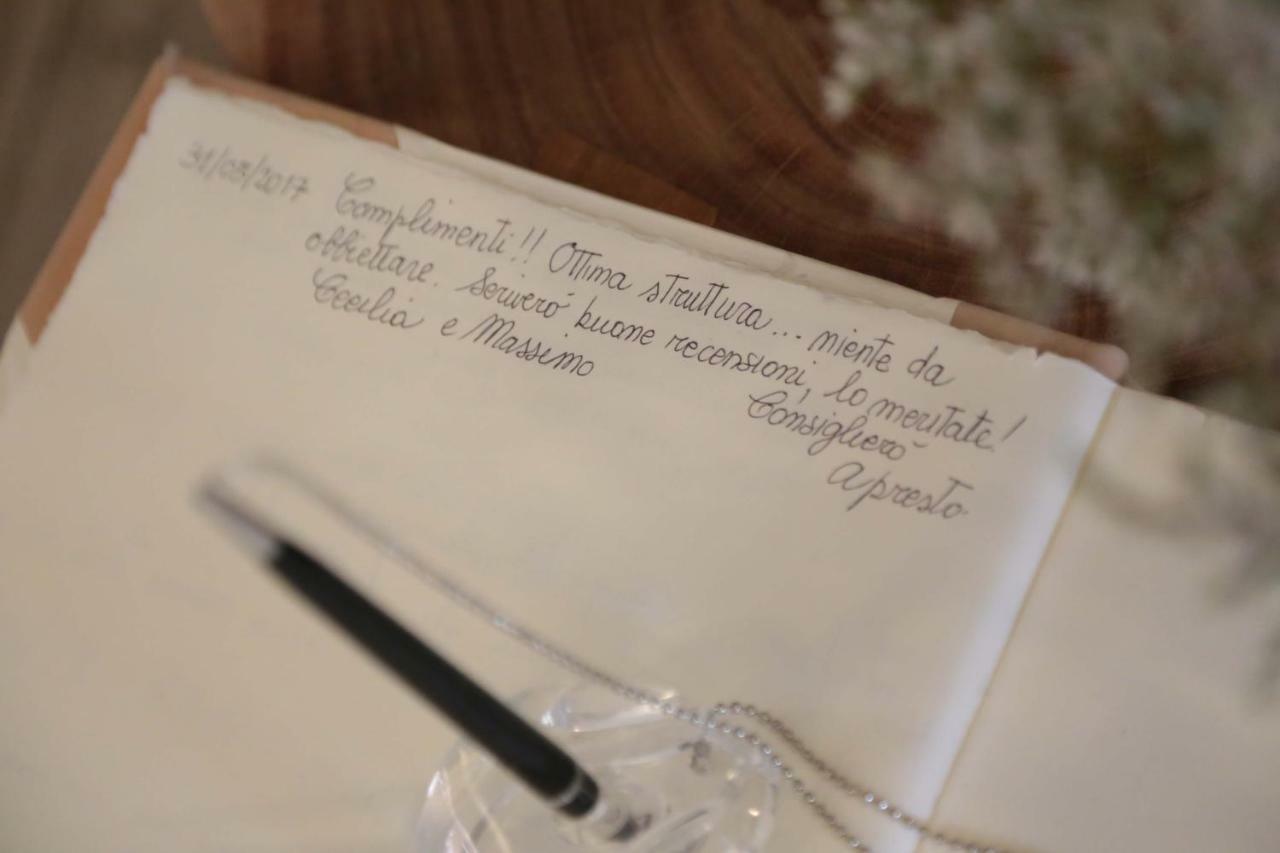 31/08/2017 Complimenti!! Ottima struttura... niente da
obbiettare. Scriverò buone recensioni, lo meritate!
Cecilia e Massimo
Consiglierò
A presto.